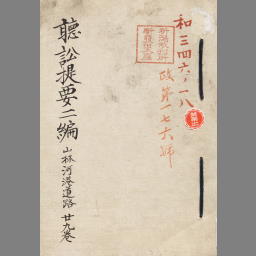 和三四六・一八
政第一七六号
聽訟提要二編
山林河港道路 廿九巻